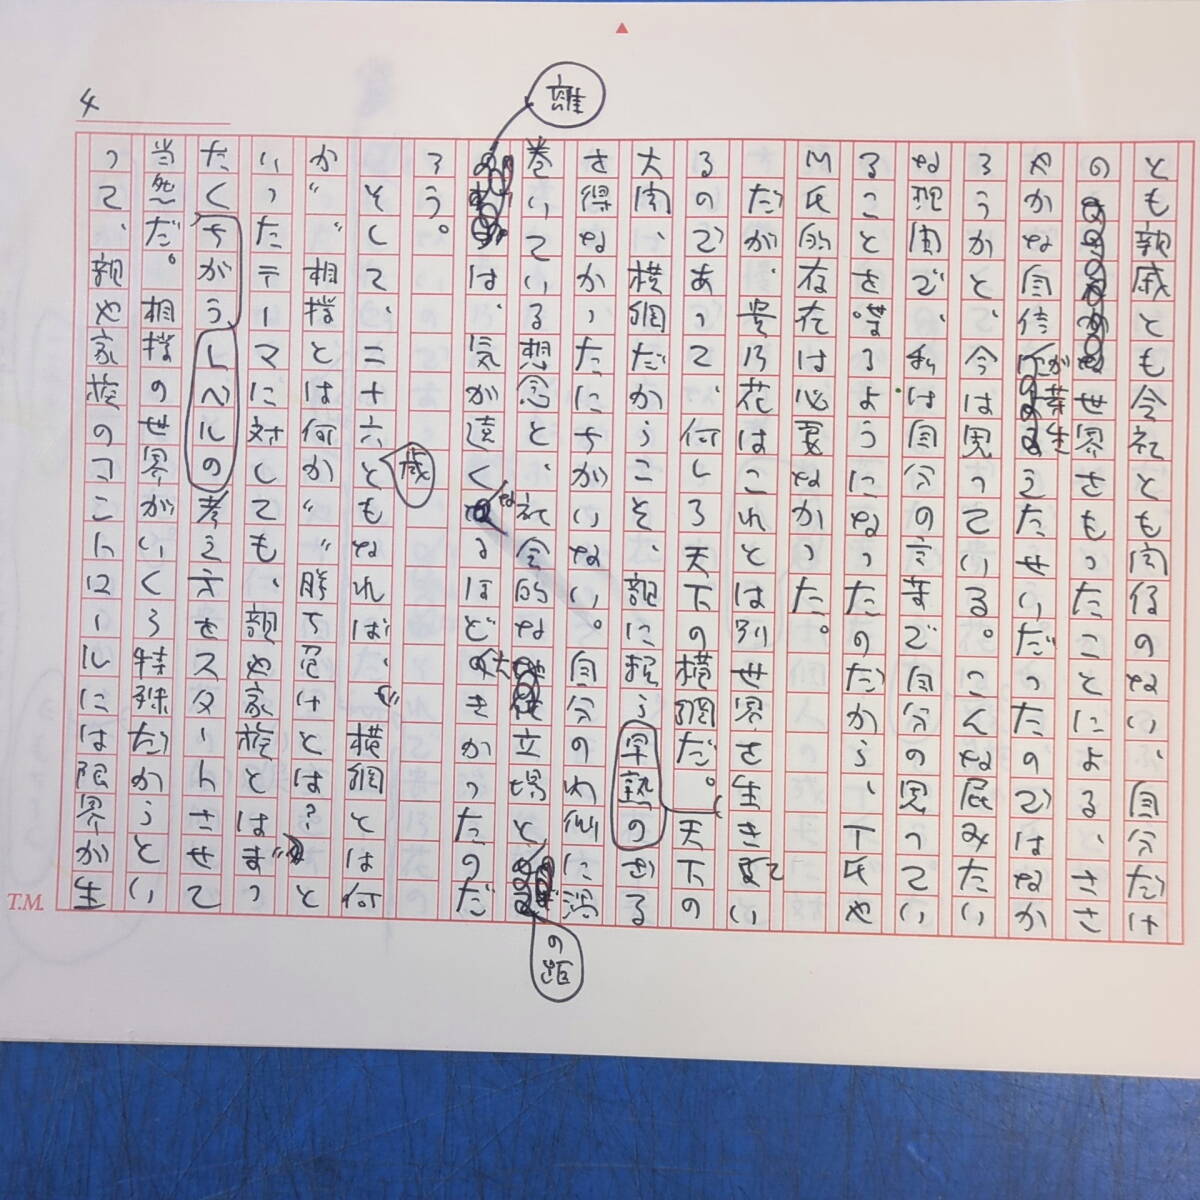 4
とも親戚とも会社とも関係のない、自分だけ
の世界をもったことによる、ささ
やかな自信が芽生えたせいだったのではなか
ろうかと、今は思っている。こんな屁みたい
な理由で、私は自分の言葉で自分の思ってい
ることを喋るようになったのだから、T氏や
M氏的存在は必要なかった。
だが、貴乃花はこれとは別世界を生きてい
るのであって、何しろ天下の横綱だ。天下の
大関、横綱だからこそ、親に抗う早熟のざる
を得なかったにちがいない。自分のわ
巻いている想念と、社会的な立場と
の距
離
は、気が遠くなるほど大きかったのだ
ろう。
そして、二十六歳ともなれば、“横綱とは何
か”“相撲とは何か”“勝ち負けとは?”と
いったテーマに対しても、親や家族とはまっ
たくちがうレベルの考え方をスタートさせて
当然だ。相撲の世界がいくら特殊だからとい
って、親や家族のマニュアルには限界が生
T.M.